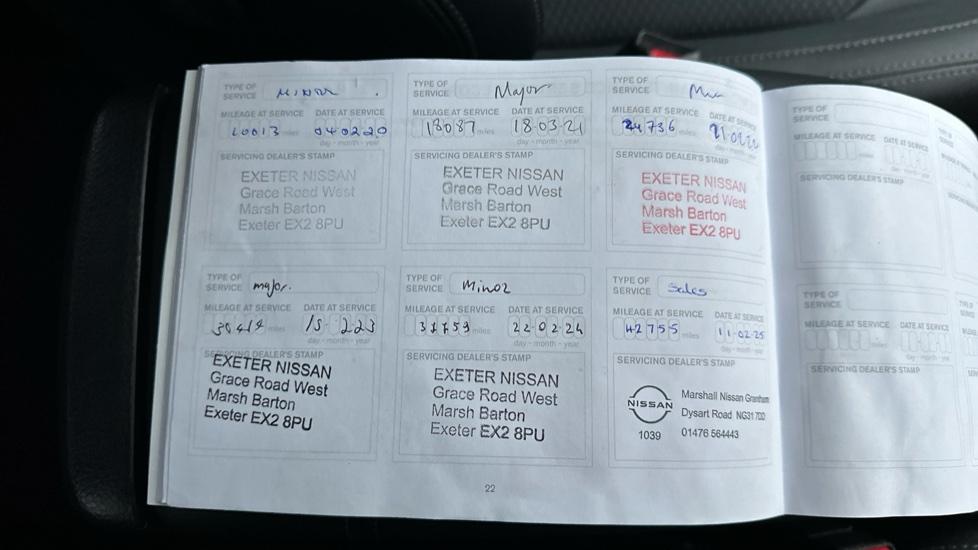 TYPE OF SERVICE MINOR
MILEAGE AT SERVICE DATE AT SERVICE
10013 miles 04 02 20
day - month - year
SERVICING DEALER'S STAMP
EXETER NISSAN
Grace Road West
Marsh Barton
Exeter EX2 8PU
TYPE OF SERVICE Major
MILEAGE AT SERVICE DATE AT SERVICE
18087 miles 18-03-21
day - month - year
SERVICING DEALER'S STAMP
EXETER NISSAN
Grace Road West
Marsh Barton
Exeter EX2 8PU
TYPE OF SERVICE
MILEAGE AT SERVICE DATE AT SERVICE
24736 miles
day - month - year
SERVICING DEALER'S STAMP
EXETER NISSAN
Grace Road West
Marsh Barton
Exeter EX2 8PU
TYPE OF SERVICE major.
MILEAGE AT SERVICE DATE AT SERVICE
miles
day - month - year
SERVICING DEALER'S STAMP
EXETER NISSAN
Grace Road West
Marsh Barton
Exeter EX2 8PU
TYPE OF SERVICE Minor
MILEAGE AT SERVICE DATE AT SERVICE
miles 22 02 24
day - month - year
SERVICING DEALER'S STAMP
EXETER NISSAN
Grace Road West
Marsh Barton
Exeter EX2 8PU
TYPE OF SERVICE Sales
MILEAGE AT SERVICE DATE AT SERVICE
42755 miles 11-02-25
day - month - year
SERVICING DEALER'S STAMP
NISSAN
1039
Marshall Nissan Grantham
Dysart Road NG31 7DD
01476 564443
22
TYPE OF SERVICE
MILEAGE AT SERVICE DATE AT SERVICE
SERVICING DEALER'S STAMP
TYPE OF SERVICE
MILEAGE AT SERVICE DATE AT SERVICE
SERVICING DEALER'S STAMP